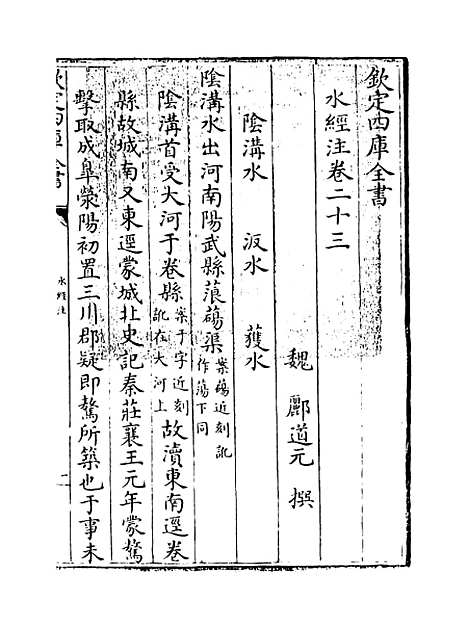 欽定四庫全書
水經注卷二十三
魏 酈道元 撰
陰溝水 汳水 獲水
陰溝水出河南陽武縣蒗蕩渠案蕩近刻訛作蕩下同
陰溝首受大河于卷縣案于字近刻訛在大河上故瀆東南逕卷
縣故城南又東逕蒙城北史記秦莊襄王元年蒙驁
擊取成臯滎陽初置三川郡疑即驁所築也于事未
欽定四庫全書
水經注